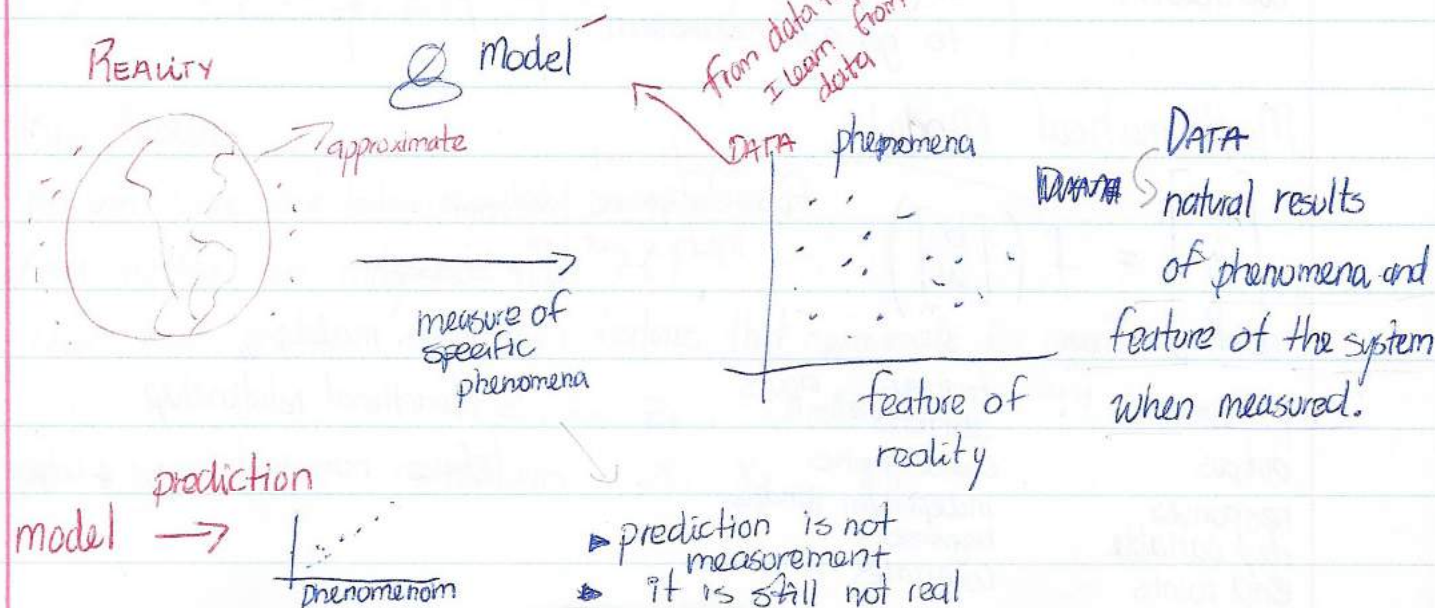 REALITY
Model
from data
I learn from
data
approximate
DATA
phenomena
DATA
natural results
of phenomena and
feature of the system
when measured.
measure of
specific
phenomena
feature of
reality
prediction
model →
Phenomenom
▶ prediction is not
measurement
▶ it is still not real